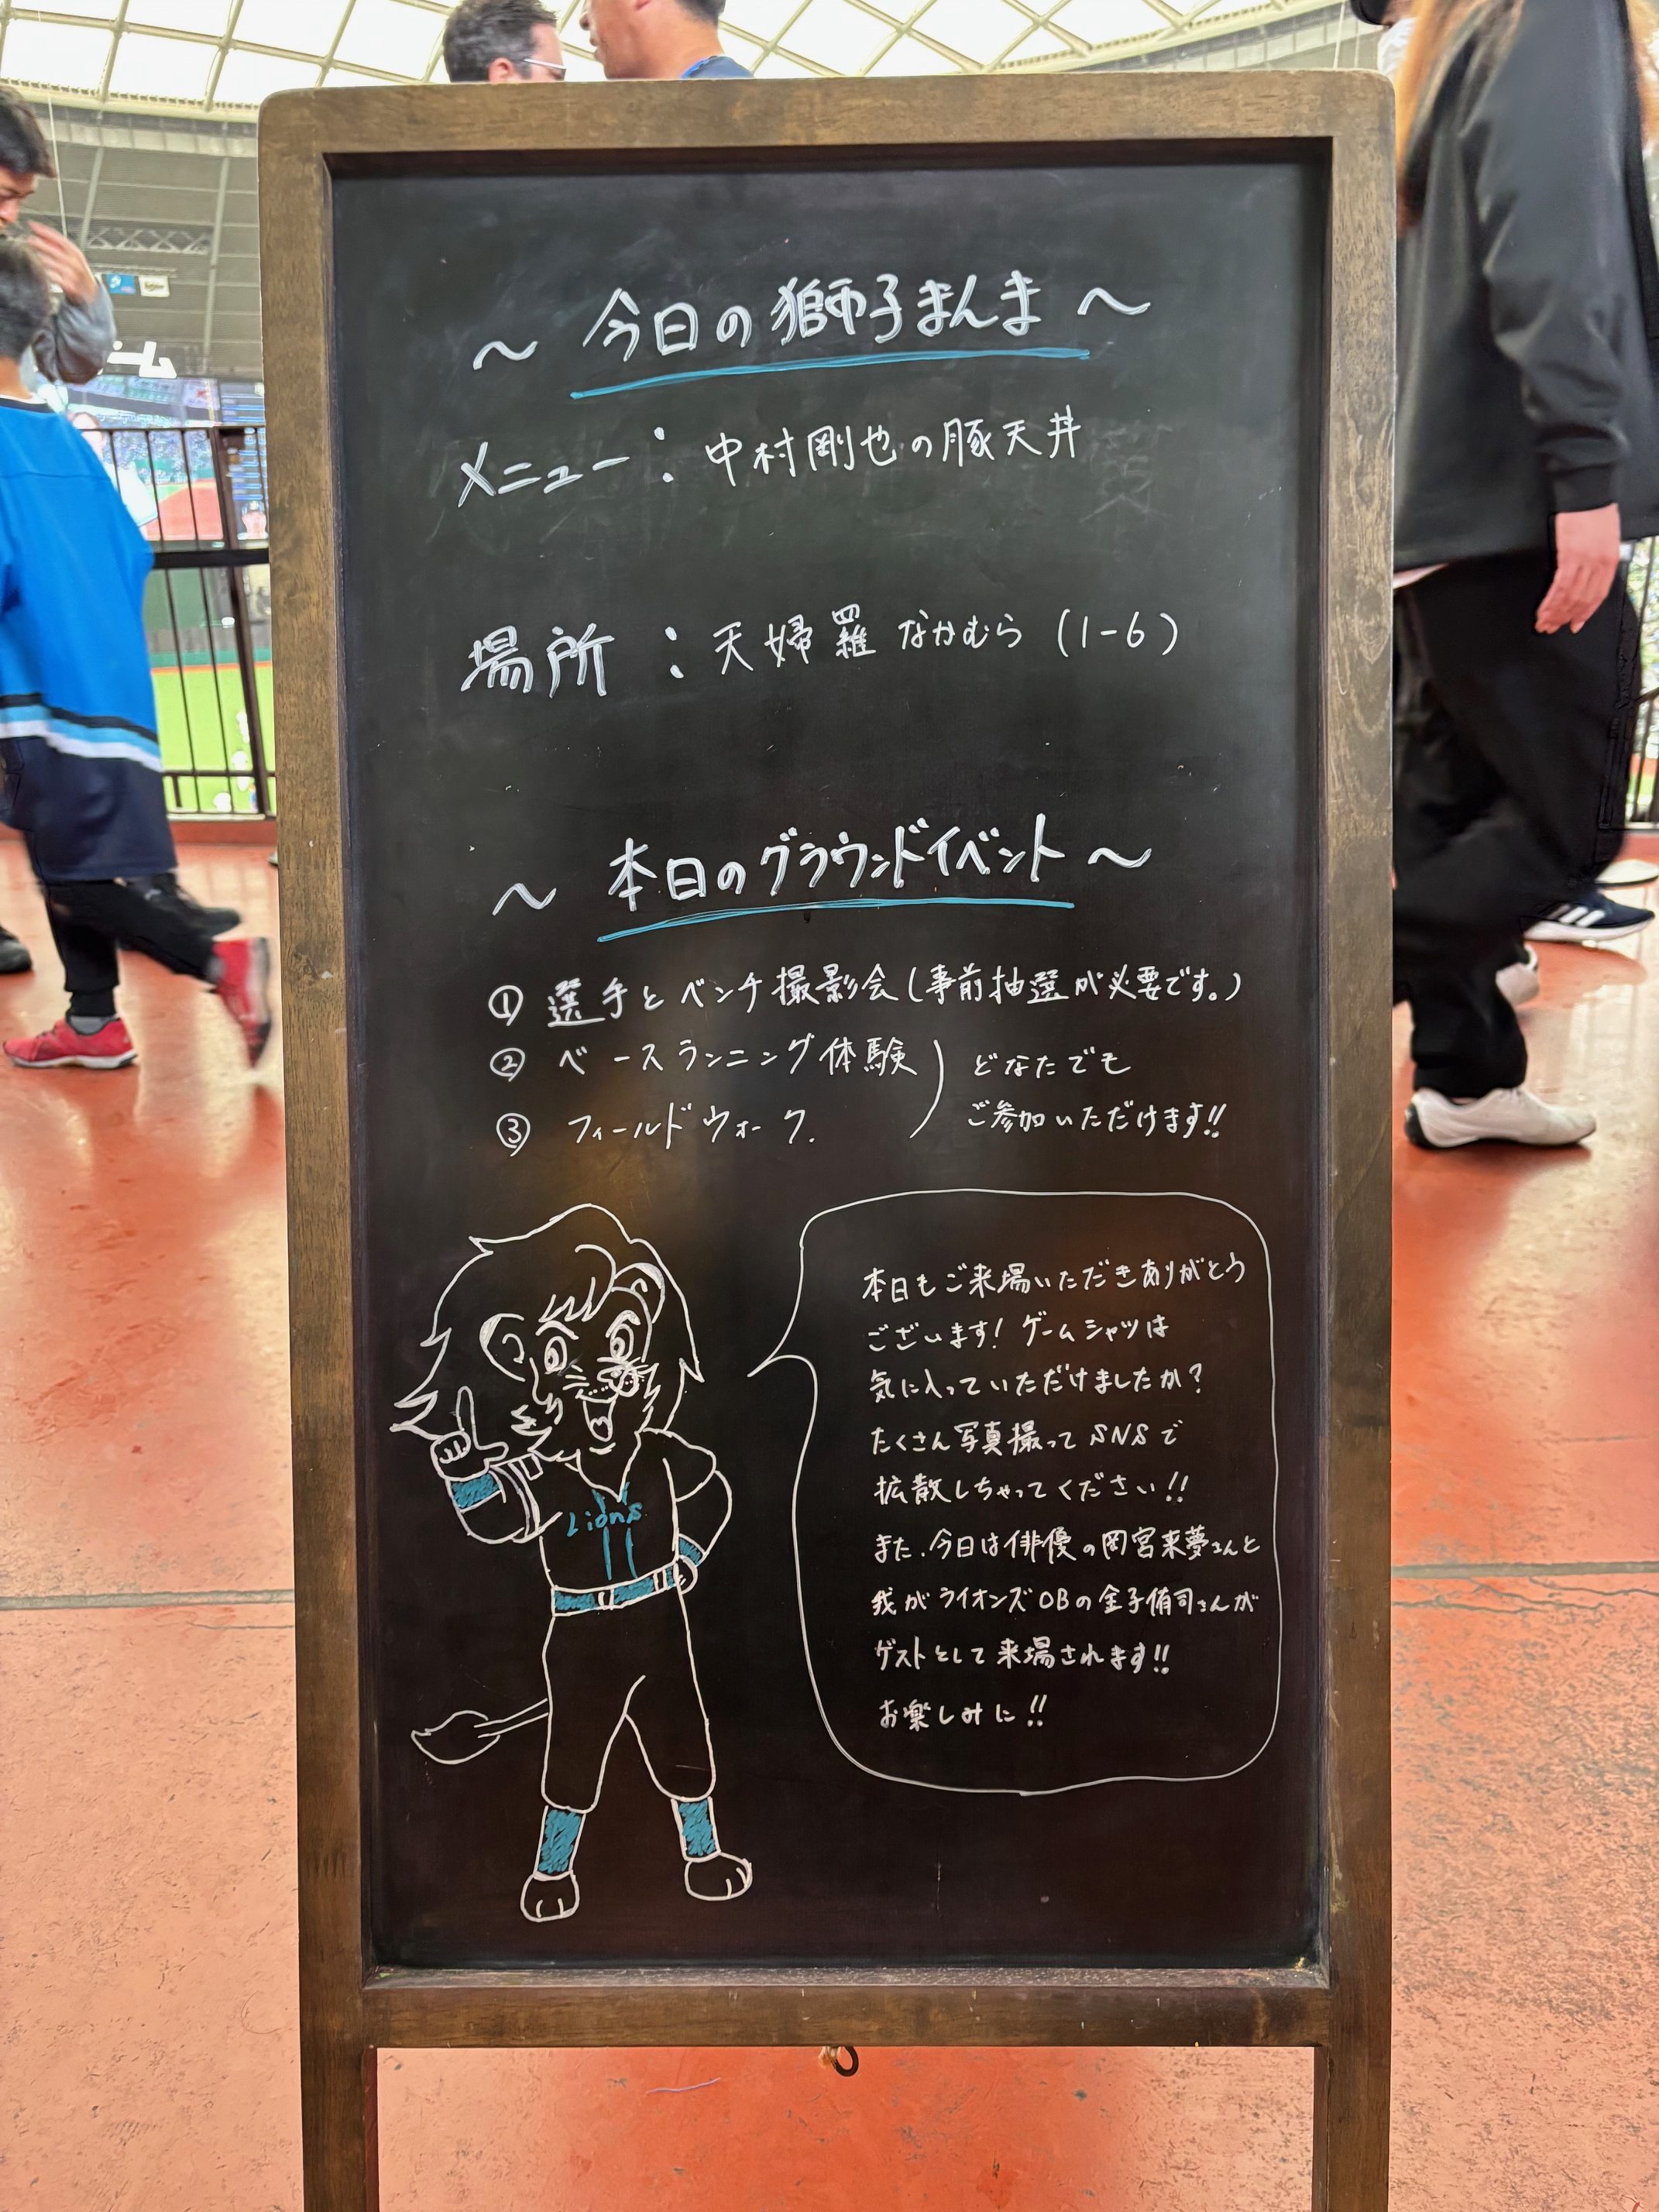 ～ 今日の獅子まんま ～
メニュー：中村剛也の豚天丼
場所：天婦羅 なかむら (1-6)
～ 本日のグラウンドイベント ～
① 選手とベンチ撮影会(事前抽選が必要です。)
② ベースランニング体験
③ フィールドウォーク.
どなたでも
ご参加いただけます!!
本日もご来場いただきありがとう
ございます! ゲームシャツは
気に入っていただけましたか?
たくさん写真撮ってSNSで
拡散しちゃってください!!
また、今日は俳優の岡宮来夢さんと
我がライオンズOBの金子侑司さんが
ゲストとして来場されます!!
お楽しみに!!
Lions